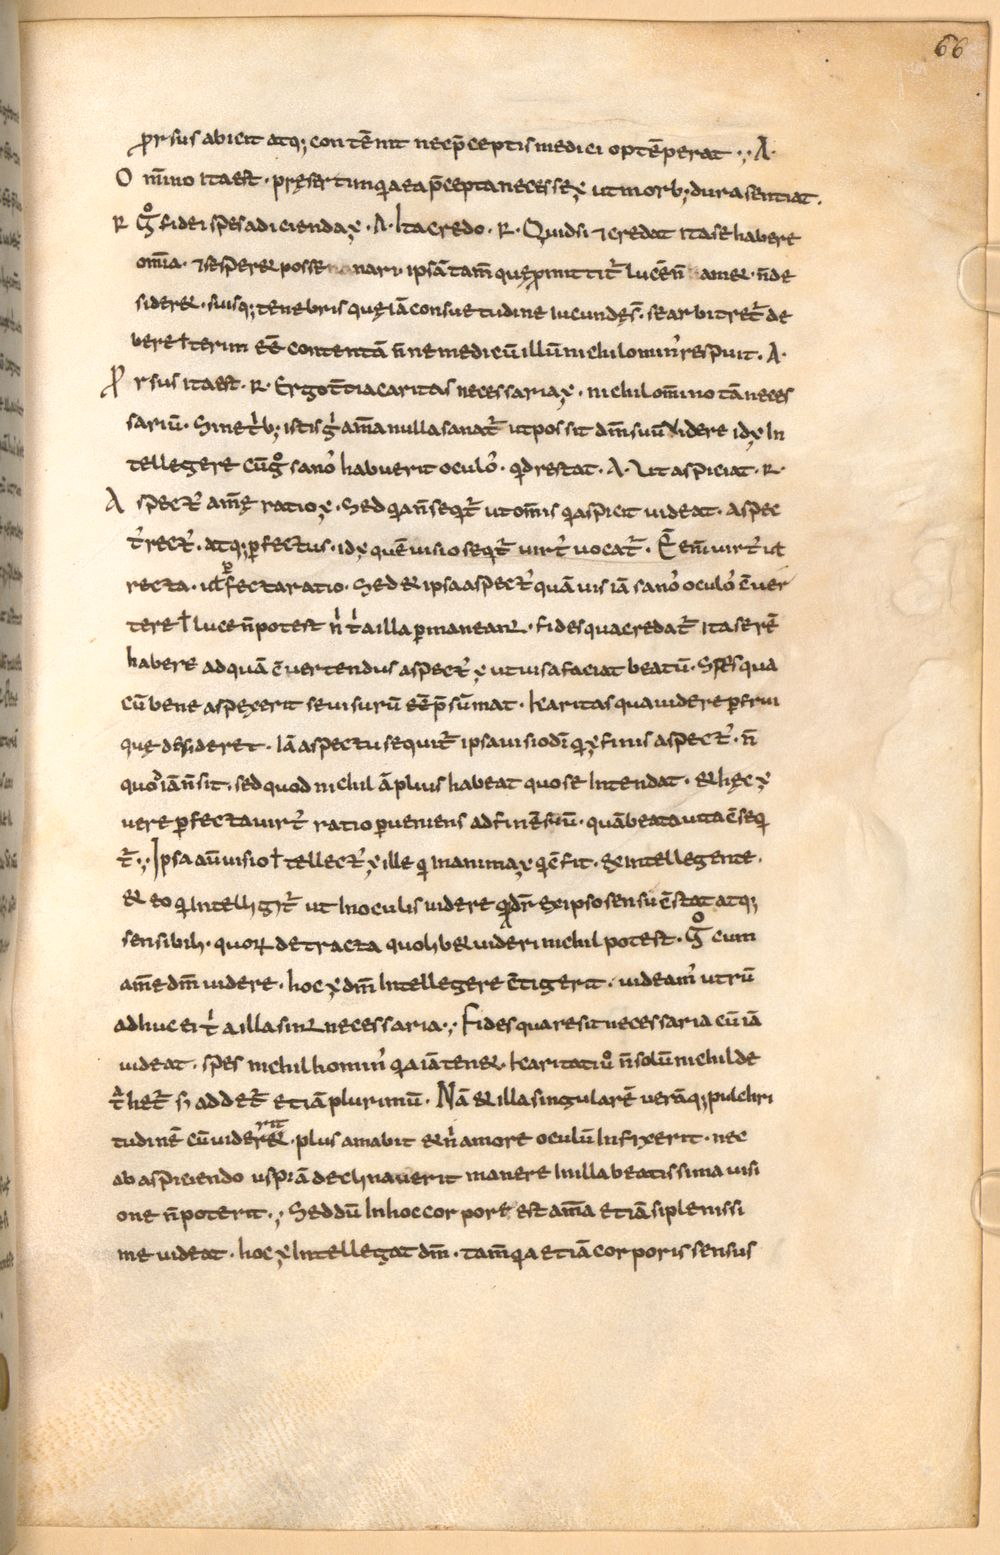 66
prorsus abicit atq; contēnit nec p̄ceptis medici optēperat ·,· A·
Om̄ino ita est · pręsertim q̇a ea p̄cepta necesse ÷ ut morb; dura sentiat ·
R g̊ fidei spes adicienda ÷ · A · Ita credo · R · Quid si & credat ita se habere
om̄ia · & se sperɛ& posse nari · ipsā tam̄ quę p̱mittit̄ lucē n̄ am& · n̄ de
sider& · suisq; tenebris quę iā consuetudine iucundę s̄ · se arbitret̄ de
bere īterim eē contentā n̄ne medicū illū nichilomin᾽ respuit · A ·
Prorsus ita est · R · Ergo t̄tia caritas necessaria ÷ · nichil om̄ino tā neces
sariū · Sine t̓b; istis g̓ am̄a nulla sanat̄ ut possit dm̄ suū videre id ÷ in
tellegere cū g̊ sano᾽ habuerit oculo᾽ · qd restat · A · Ut aspiciat · R ·
Aspect᾽ am̄ę ratio ÷ · Sed q̇a n̄ seqt̄ ut om̄is q̇ aspicit videat · aspec
t᾽ rect᾽ · atq; p̱fectus · id ÷ quē visio seqt̄ virt᾽ vocat̄ · Ē em̄ virt᾽ ul̄
recta · ul̄ p̱fecta ratio · Sed & ipsa aspect᾽ quāvis iā sano᾽ oculo᾽ c̄ver
tere ī luce n̄ potest n̓ t̓a illa p̱manean& · fides qua credat̄ ita se rē
habere ad quā c̄vertendus aspect᾽ ÷ ut visa faciat beatū · Spes qua
cū bene aspexerit se visurū eē p̄sūmat · Karitas qua videre p̱frui
que desideret · Iā aspectū sequit̄ ipsa visio dī q̇ ÷ finis aspect᾽ · n̄
quo iā n̄ sit · sed quod nichil āplius habeat quo se intendat · & hęc ÷
vere p̱fecta virt᾽ ratio p̱veniens ad finē suū · quā beata vita c̄seq
t̄ ·,· Ipsa aū visio ītellect᾽ ÷ ille q̇ in anima ÷ q̇ c̄fit · ex intellegente ·
& eo q̇ intelligit̄ ut in oculis videre q̇d dr̄ ex ipso sensu c̄stat atq;
sensibili · quoꝝ detracta quolib& videri nichil potest · g̊ cum
am̄e dm̄ videre · hoc ÷ dm̄ intellegere c̄tigerit · videam᾽ utrū
adhuc ei t̓a illa sint necessaria ·,· Fides quare sit necessaria cū iā
videat · spes nichilhomin᾽ q̇a iā ten& · Karitati v̊ n̄ solū nichil de
t̓het̄ s; addet̄ etiā plurimū · Nā & illa singularē verāq; pulchri
tudinē cū viderit · plus amabit & n̓ amore oculū infixerit · nec
ab aspiciendo uspiā declinaverit manere in illa beatissima visi
one n̄ poterit ·,· Sed dū in hoc corpore est am̄a etiā si plenissi
me videat · hoc ÷ intellegat dm̄ · tam̄ q̇a etiā corporis sensus